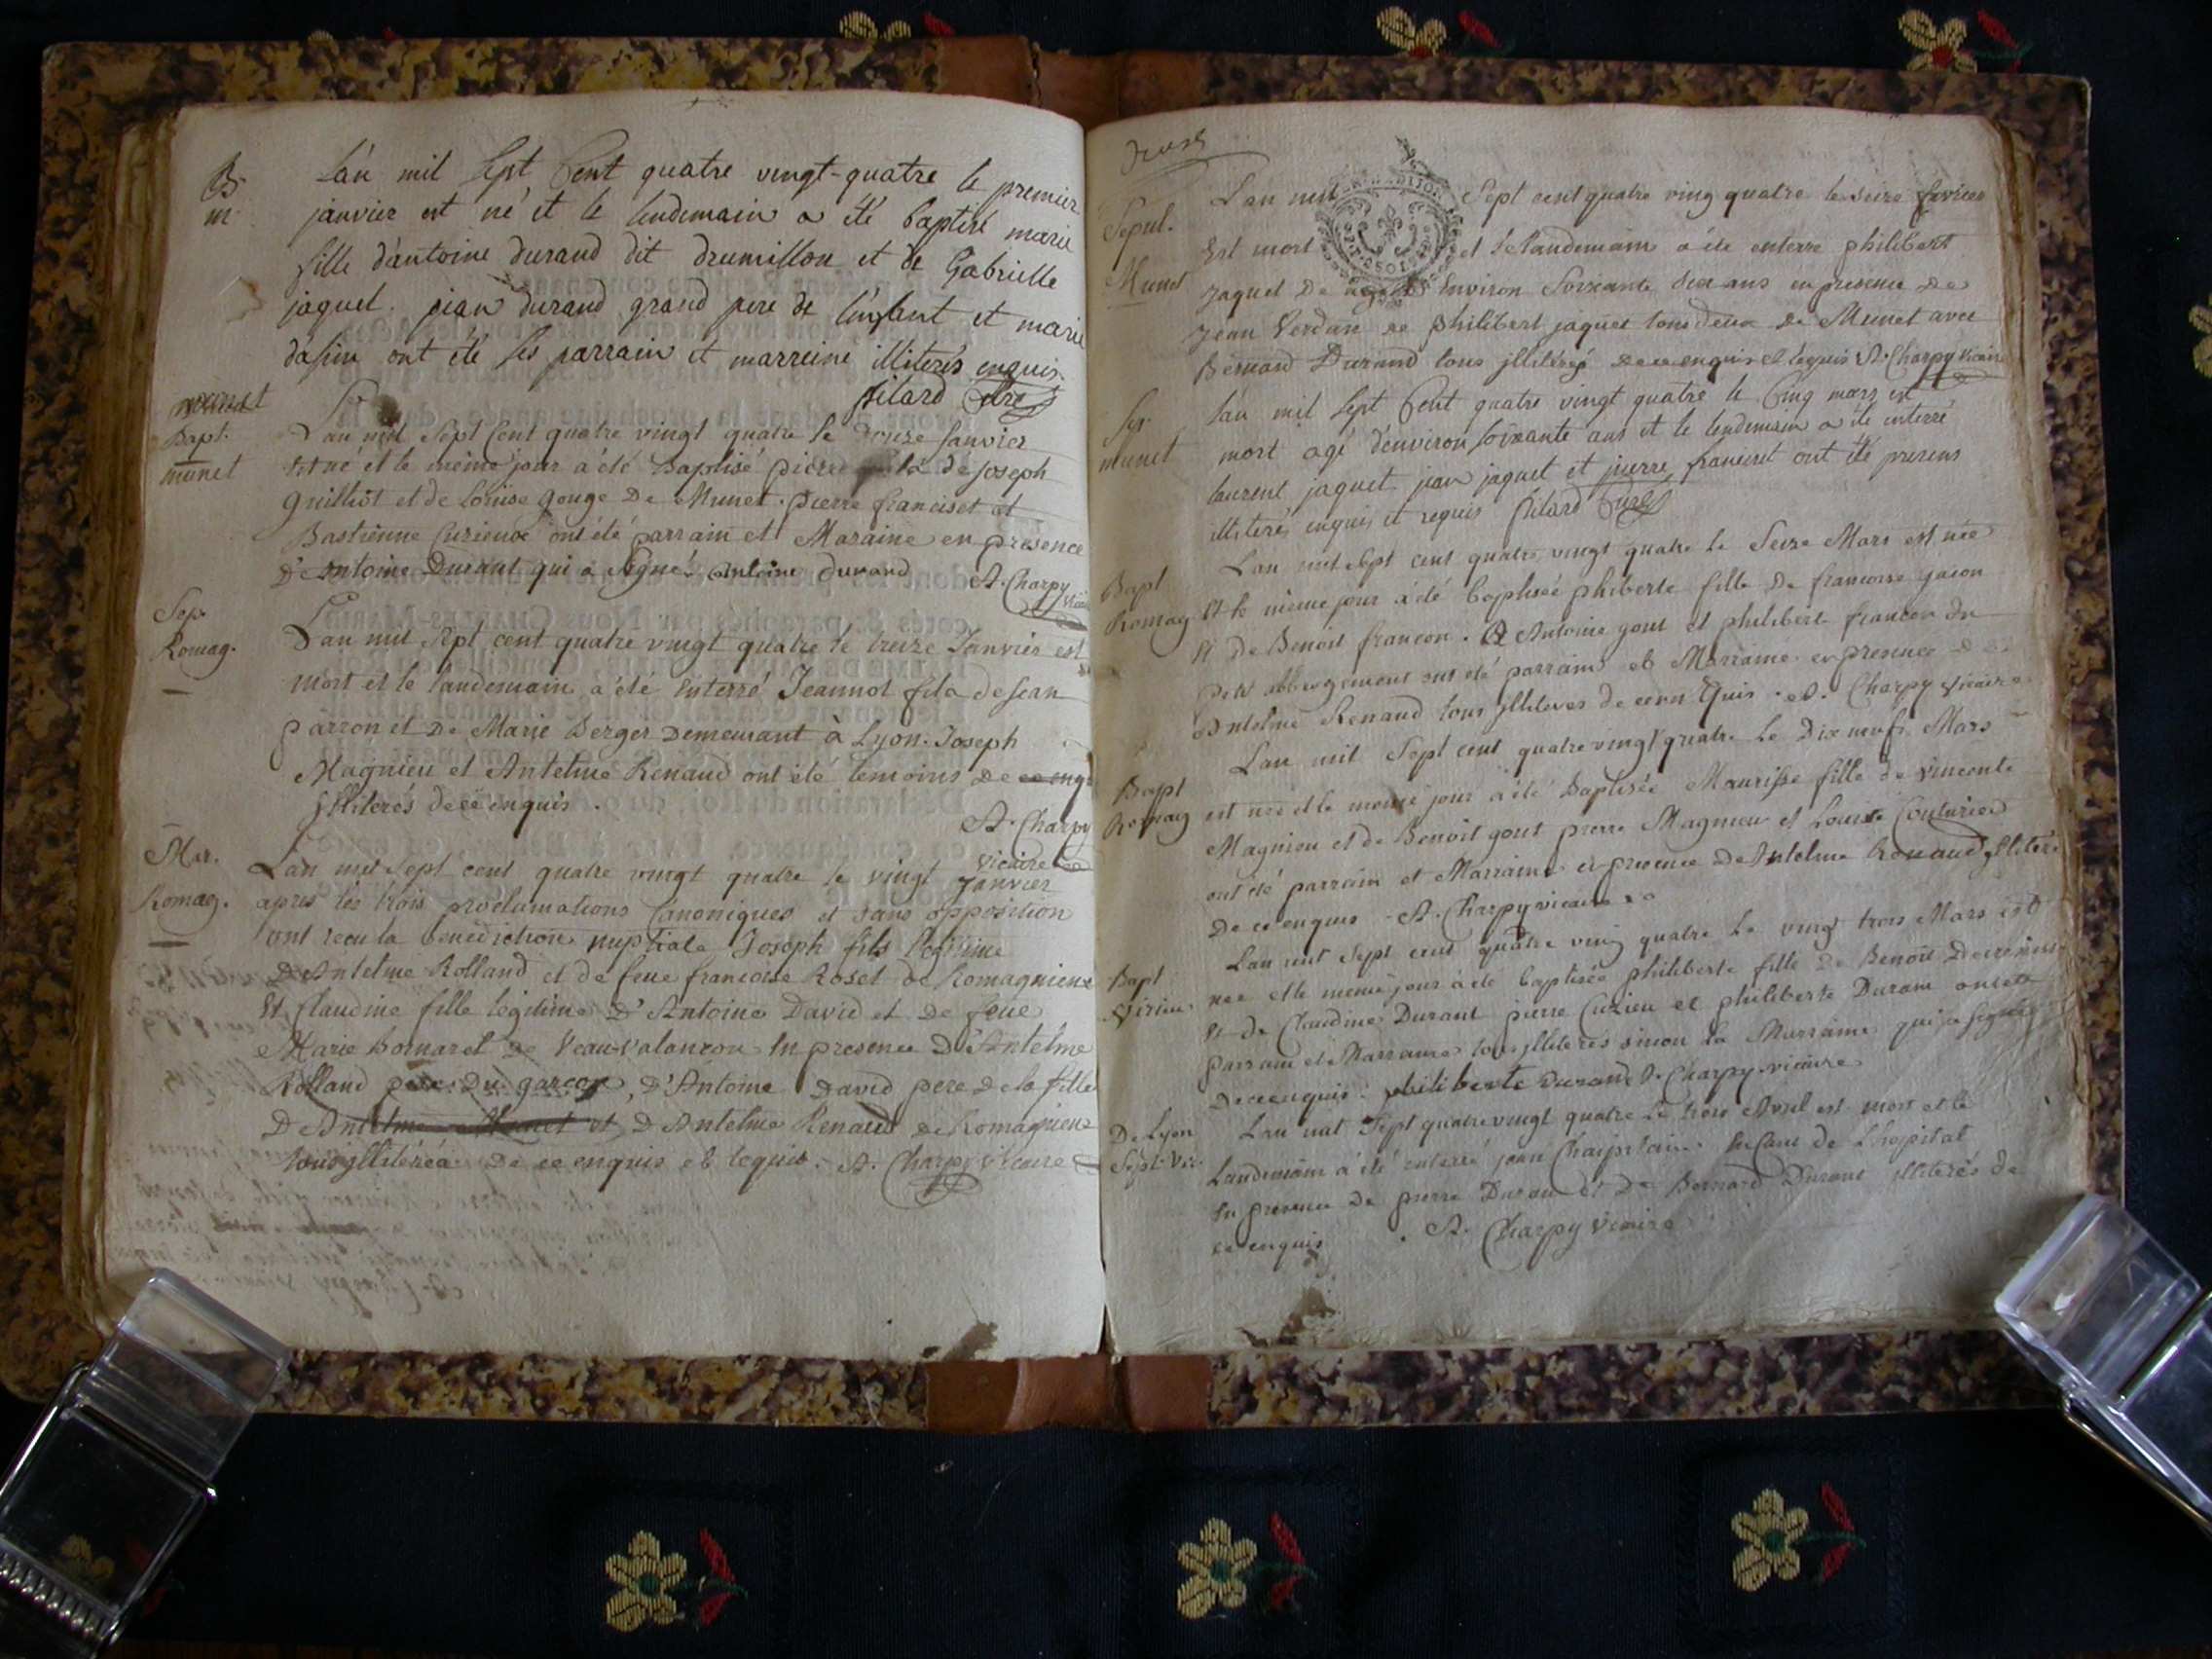 B. m.
L'an mil sept Cent quatre vingt-quatre le premier
janvier est né et le lendemain a été baptisé marie
fille d'antoine durand dit drumillon et de Gabrielle
jaquet. jean durand grand pere de l'enfant et marie
ont été ses parrain et marreine illiterés enquis.
pilard Curé
munet
Bapt.
munet
L'an mil sept Cent quatre vingt quatre le douze Janvier
est né et le même jour a été Baptisé pierre fils de joseph
guilliot et de louise gouge De Munet. pierre franciset et
Bastienne Curieuse ont été parrain et Maraine en presence
D'Antoine Durant qui a signé. antoine durand A. Charpy vicaire
Sep.
Romag.
L'an mil sept cent quatre vingt quatre le treize Janvier est
mort et le landemain a été Enterré Jeannot fils de Jean
parron et De Marie Berger Demeurant à Lyon. Joseph
Magnieu et Antelme Renaud ont été temoins de ce enqu
jlliterés de ce enquis.
A. Charpy
vicaire
Mar.
Romag.
L'an mil sept cent quatre vingt quatre le vingt Janvier
apres les trois proclamations Canoniques et sans opposition
ont recu la benediction nuptiale Joseph fils légitime
D'Antelme Rolland et de feue francoise Roset de Romagnieux
Et flaudine fille légitime D'Antoine David et De feue
Marie bornaret de Veau-valancon En presence D'Antelme
Rolland pere du garcon, D'Antoine David pere De la fille
D'Antelme Munet et D'Antelme Renaud de Romagnieux
tous jlliterés De ce enquis et requis. A. Charpy vicaire
Sepul.
Munet
L'an mil Sept cent quatre ving quatre le seize fevrier
Est mort et le landemain a été enterré philibert
jaquet De agé Environ Soixante dix ans en presence de
Jean Verdan de philibert jaquet tous deux de Munet avec
Bernard Durand tous jlliterés de ce enquis et requis A. Charpy vicaire
Sep.
munet
L'an mil sept Cent quatre vingt quatre le Cinq mars est
mort agé d'environ soixante ans et le lendemain a été enterré
laurent jaquet jean jaquet et pierre franciset ont été presens
illiterés enquis et requis pilard Curé
Bapt
Romag
L'an mil sept cent quatre vingt quatre le Seize Mars est née
Et le même jour a été baptisée phiberte fille De francoise jacon
Et de Benoit francon. Antoine gout et philibert francon du
petit abbergement ont été parrain et Marraine en presence de
Antelme Renaud tous jlliterés de ce enquis. A. Charpy vicaire
Bapt
Romag
L'an mil Sept cent quatre vingt quatre Le Dix neuf Mars
est née et le meme jour a été Baptisée Maurisse fille de vincent
Magnieu et de Benoit gout pierre Magnieu et Louise Couturier
ont été parrain et Marraine en presence De Antelme Renaud jlliteré
De ce enquis A. Charpy vicaire
Bapt
Virieu
L'an mil sept cent quatre ving quatre Le vingt trois Mars est
née et le meme jour a été baptisée philiberte fille De Benoit
Et de Claudine Durant pierre Cuzieu et philiberte Durant ont été
parrain et Marraine tous jlliterés sinon la Marraine qui a signé
De ce enquis. philiberte durand A. Charpy vicaire
De Lyon
Sept. Vir.
L'an mil Sept quatre vingt quatre Le trois Avril est mort et le
Landemain a été enterré jean Charpitain Enfant de L'hopital
En presence De pierre Durand et De Bernard Durant illiterés de
ce enquis. A. Charpy vicaire